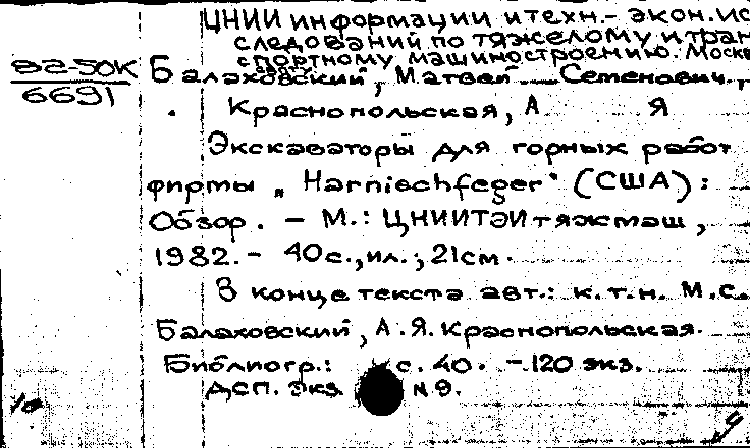 ЦНИИ информации и техн.- экон. ис
следований по тяжелому и тран
спортному машиностроению. Москв
82-50К
6691
Балаховский, Матвей Семенович,
Краснопольская, А Я
Экскаваторы для горных работ
фирмы „Harnischfeger“ (США):
Обзор. – М.: ЦНИИТЭИтяжмаш,
1982. – 40с., ил.; 21см.
В конце текста авт.: к.т.н. М.С.
Балаховский, А.Я. Краснопольская.
Библиогр.: с. 40. – 120 экз.
ДСП. Экз. N 9.